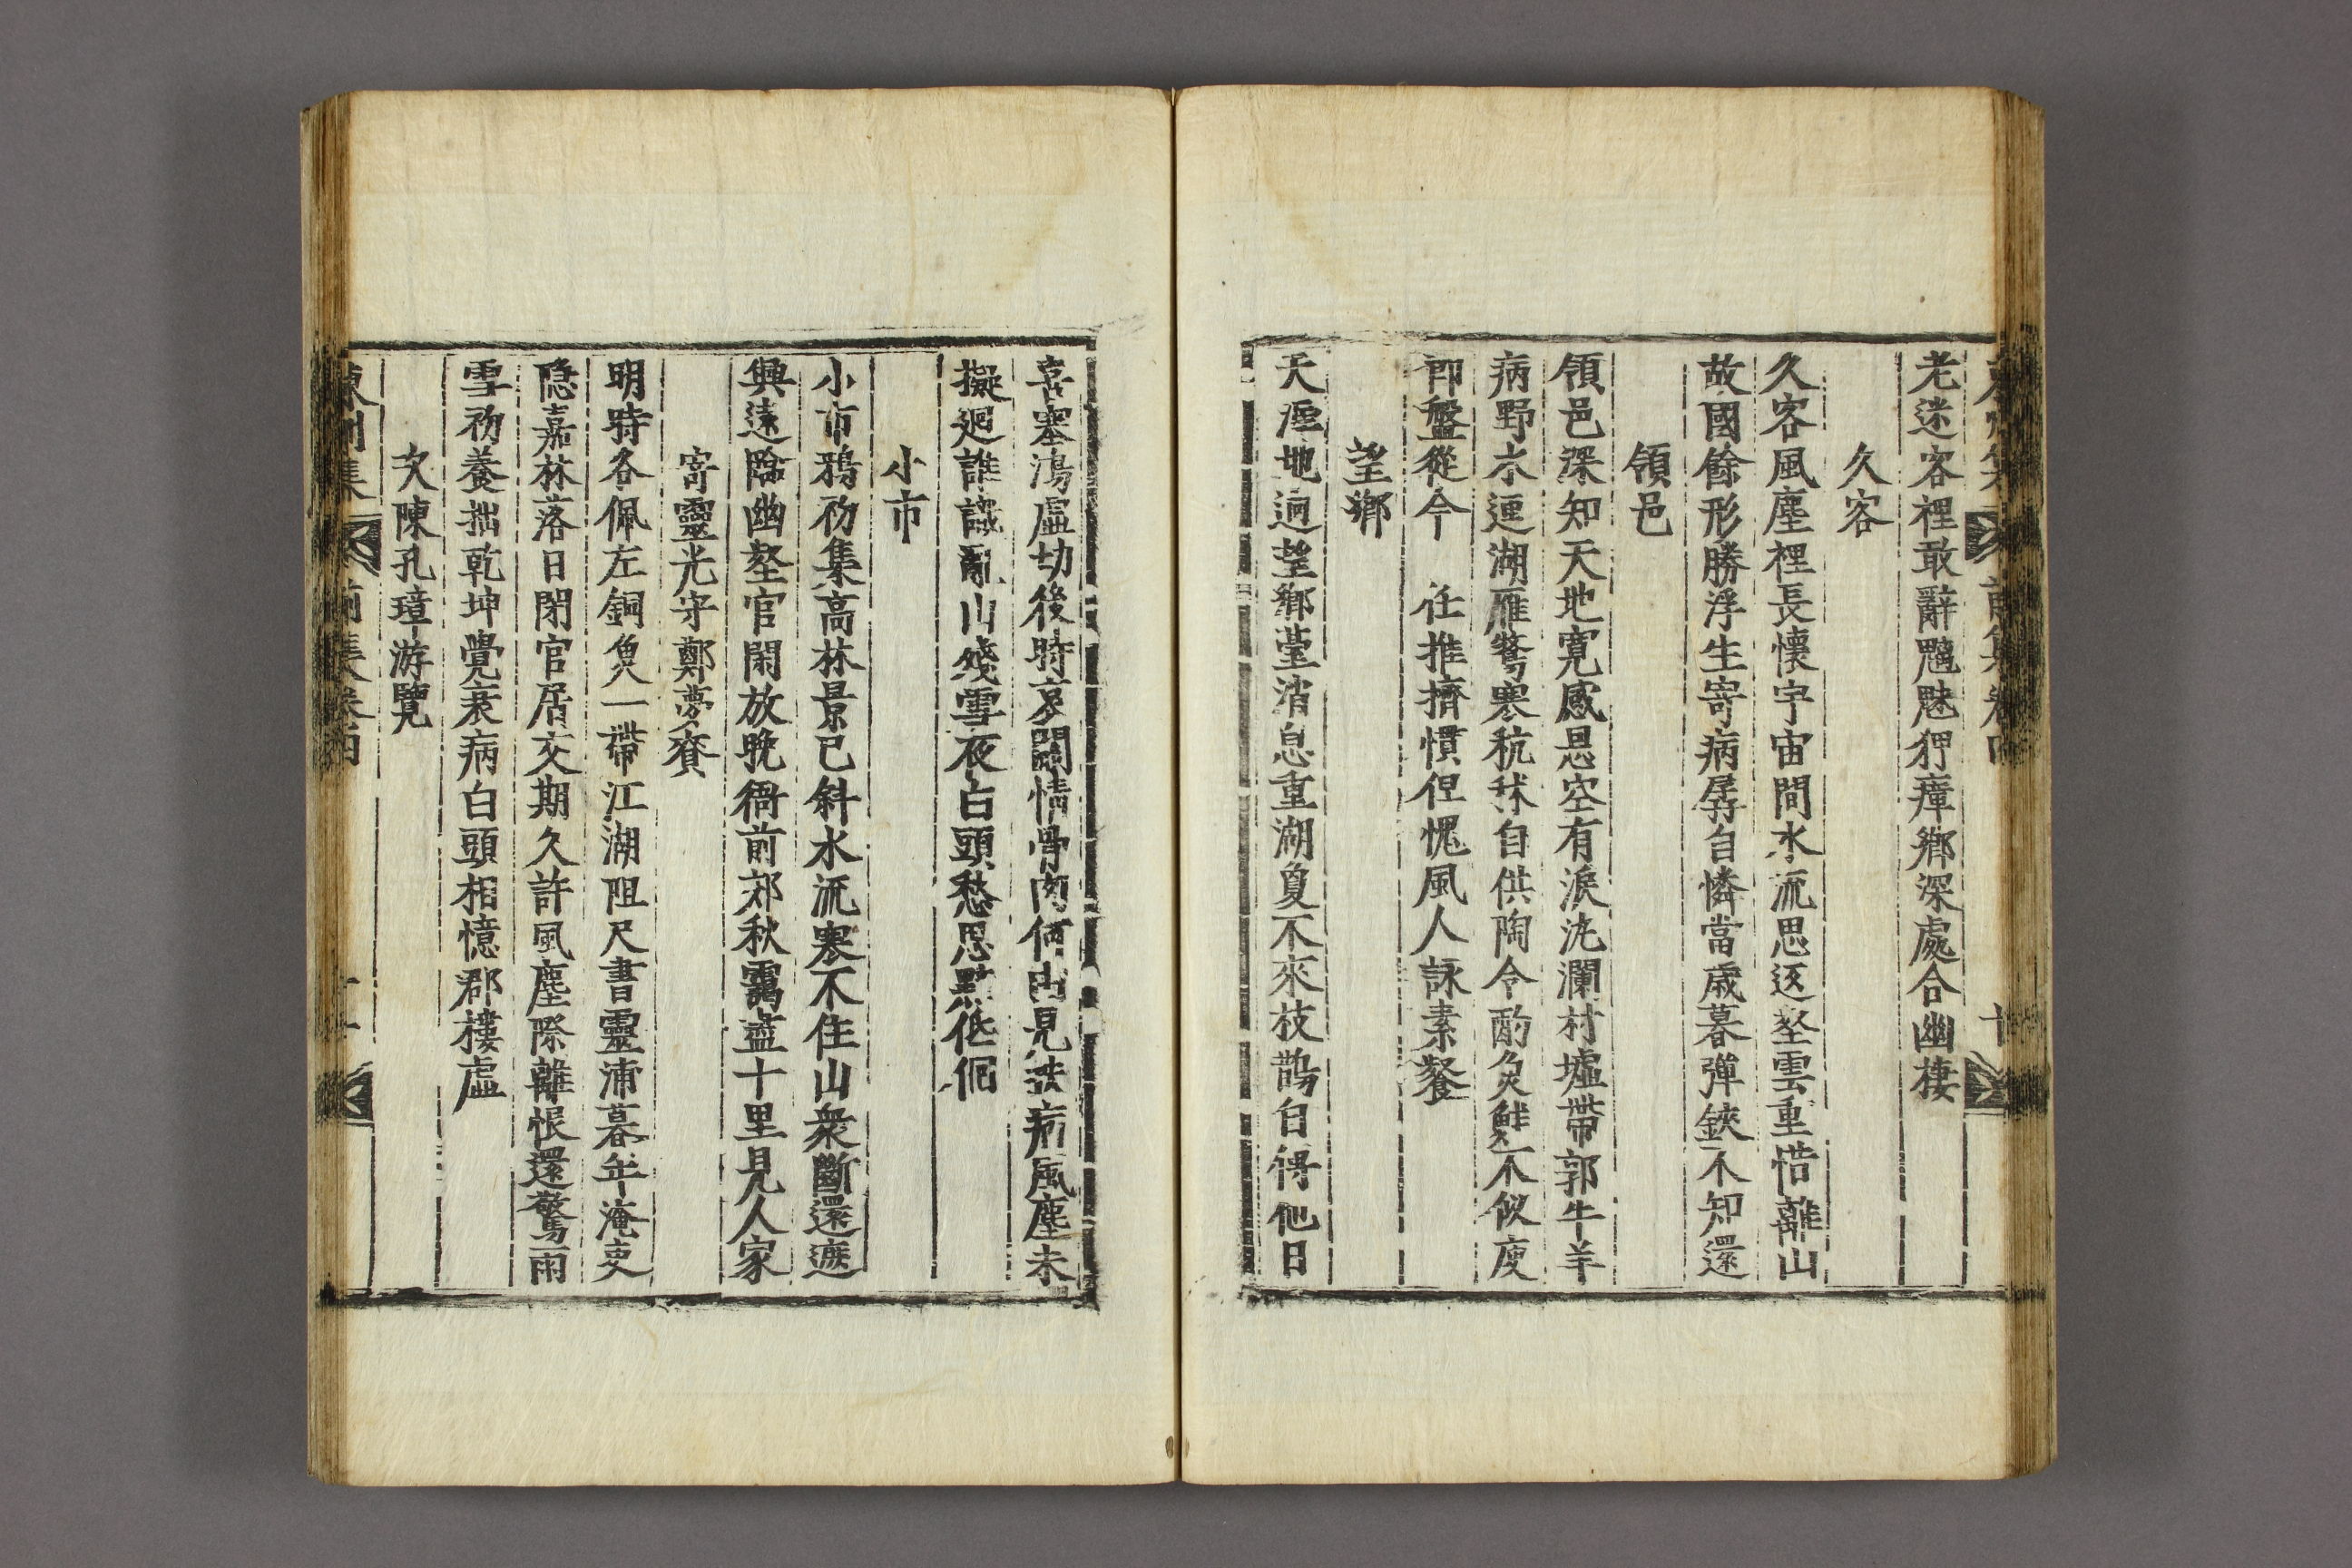 老迷客裡敢辭魑魅狎瘴鄉深處合幽棲
久客
久客風塵裡長懷宇宙間水流思返壑雲重惜離山
故國餘形勝浮生寄病孱自憐當歲暮彈鋏不知還
領邑
領邑深知天地寬感恩空有淚汍瀾村墟帶郭牛羊
病野水連湖雁鶩寒秔秫自供陶令酌魚鮭不似庾
郎盤從今 任推擠慣但愧風人詠素餐
望鄉
天涯地逈望鄉臺消息重湖夐不來枝鵲自得他日
喜塞鴻虛劫後時哀關情骨肉何由見 病風塵未
擬廻誰識亂山殘雪夜白頭愁思黙低佪
小市
小市鴉初集高林景已斜水流寒不住山衆斷還遮
興遠臨幽壑官閑放晚衙前郊秋靄盡十里見人家
寄靈光守鄭夢賚
明時各佩左銅魚一帶江湖阻尺書靈浦暮年淹吏
隱嘉林落日閉官居交期久許風塵際離恨還驚雨
雪初養拙乾坤覺衰病白頭相憶郡樓虛
次陳孔璋游覽
東州集 前集卷四